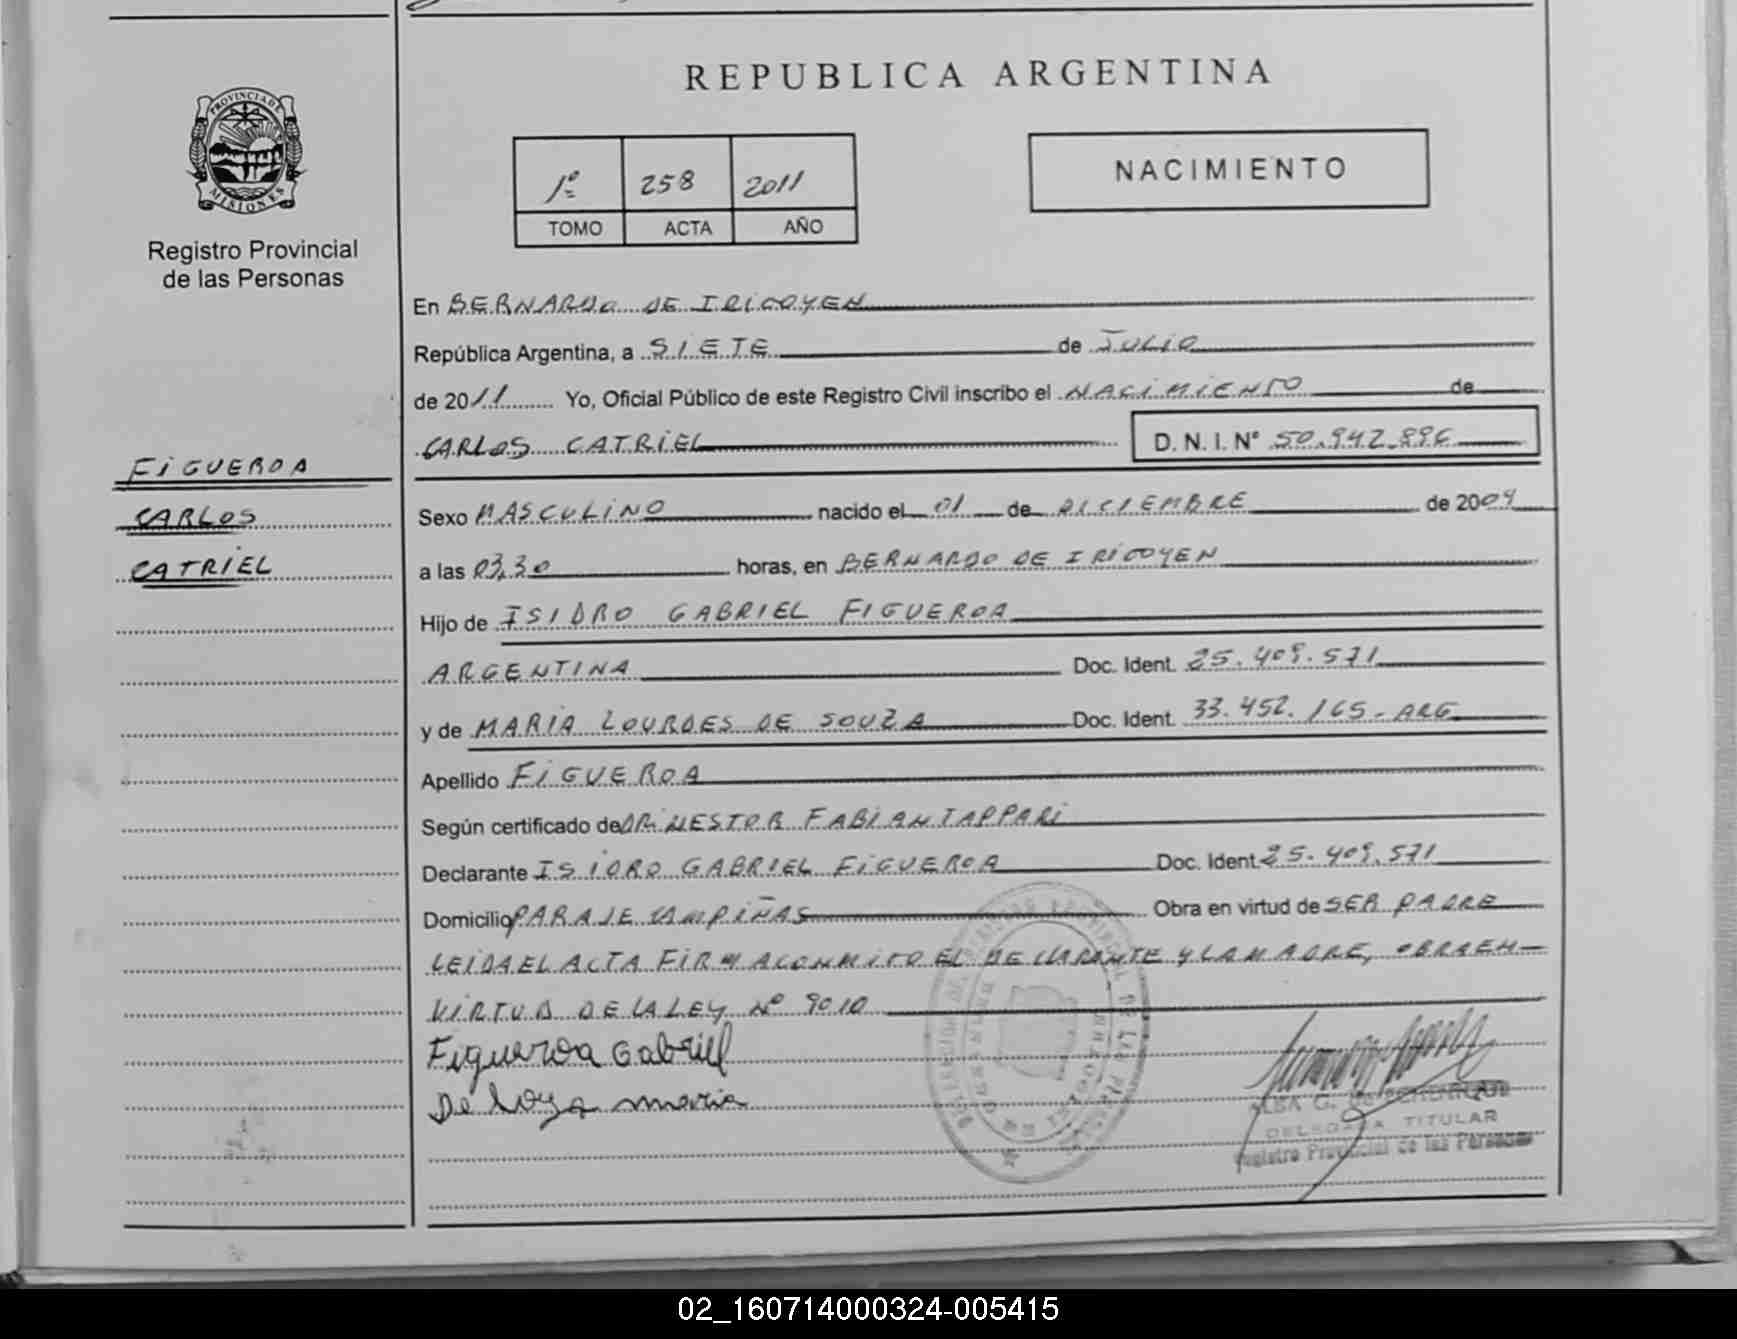 REPUBLICA ARGENTINA
PROVINCIA DE
MISIONES
Registro Provincial
de las Personas
1º 258 2011
TOMO ACTA AÑO
NACIMIENTO
En BERNARDO DE IRIGOYEN
República Argentina, a SIETE de JULIO
de 2011 Yo, Oficial Público de este Registro Civil inscribo el NACIMIENTO de
CARLOS CATRIEL D. N. I. Nº 50.942.896
FIGUEROA
CARLOS
CATRIEL
Sexo MASCULINO nacido el 01 de DICIEMBRE de 2009
a las 03,30 horas, en BERNARDO DE IRIGOYEN
Hijo de ISIDRO GABRIEL FIGUEROA
ARGENTINA Doc. Ident. 25.409.571
y de MARIA LOURDES DE SOUZA Doc. Ident. 33.452.165-ARG
Apellido FIGUEROA
Según certificado de DR. NESTOR FABIAN TAPPARI
Declarante ISIDRO GABRIEL FIGUEROA Doc. Ident. 25.409.571
Domicilio PARAJE CAMPIÑAS Obra en virtud de SER PADRE
LEIDA EL ACTA FIRMA CONMIGO EL DECLARANTE Y LA MADRE, OBRA EN
VIRTUD DE LA LEY Nº 9010
Figueroa Gabriel
De maria
ALBA G.
DELEGADA TITULAR
Registro Provincial de las Personas
02_160714000324-005415